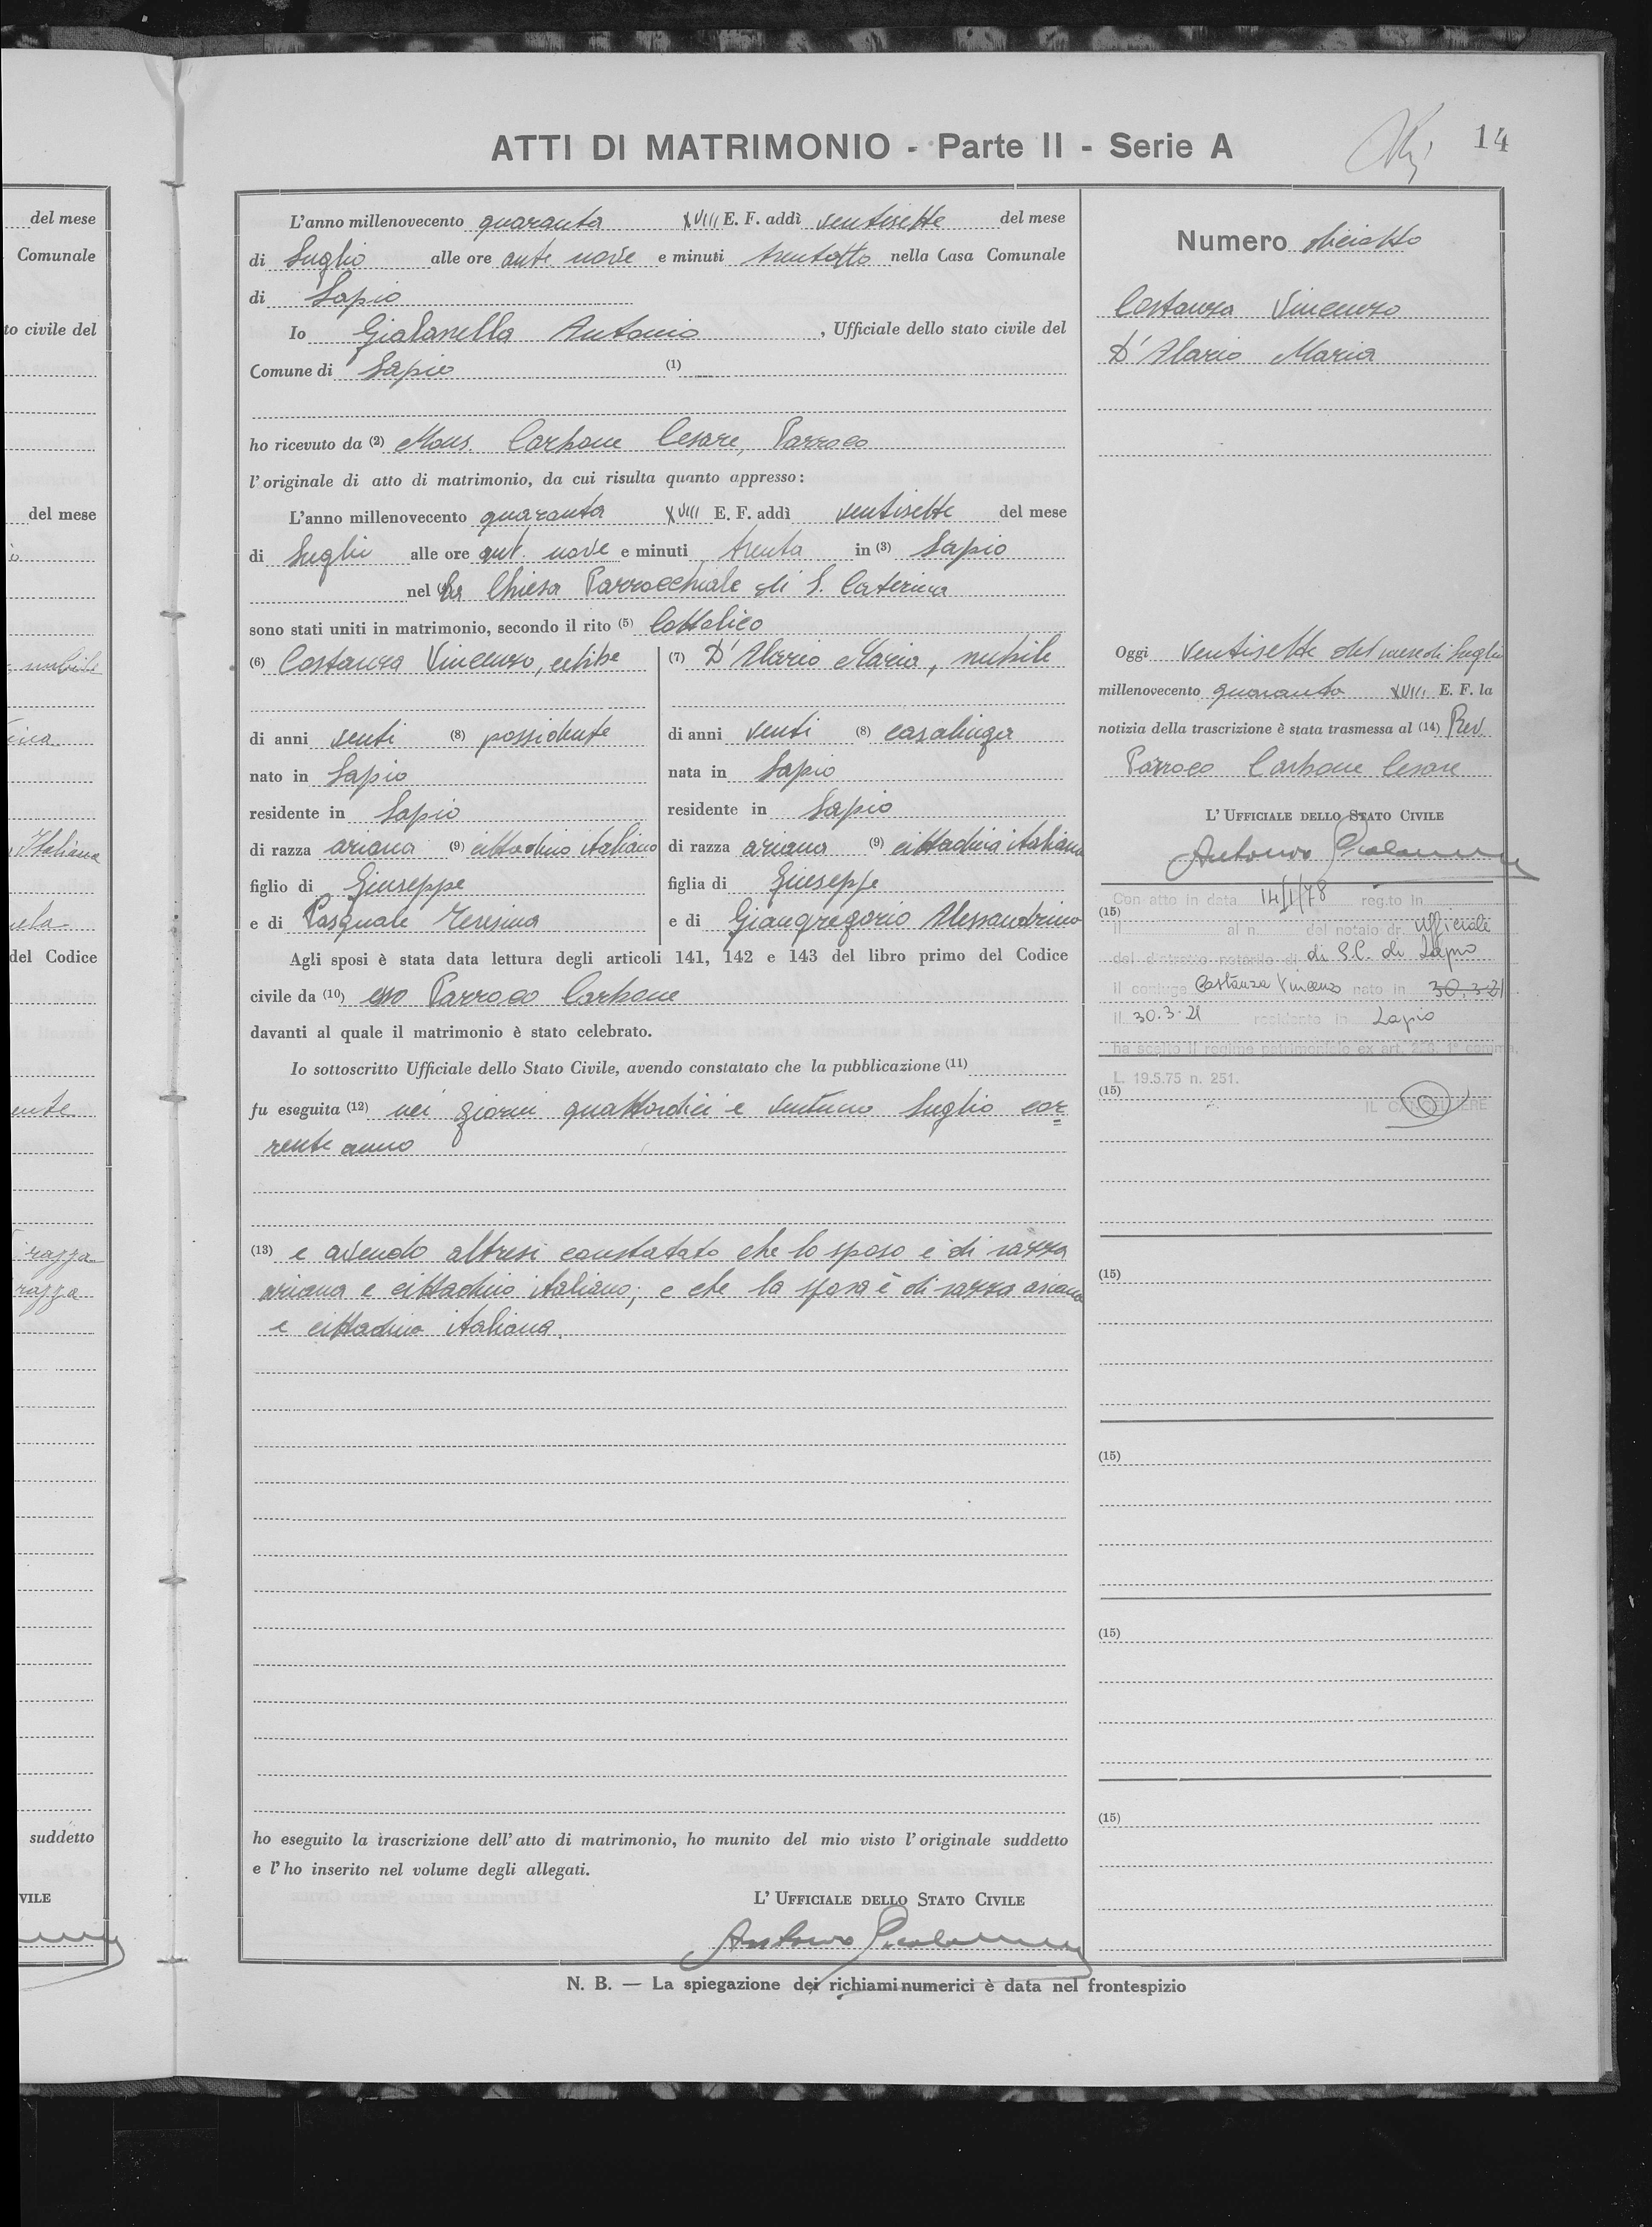 ATTI DI MATRIMONIO - Parte II - Serie A
14
L'anno millenovecento quaranta XVIII E. F. addì ventisette del mese
di Luglio alle ore ante nove e minuti trentotto nella Casa Comunale
di Lapio
Io Gialanella Antonio, Ufficiale dello stato civile del
Comune di Lapio (1)
ho ricevuto da (2) Mons. Carbone Cesare, Parroco
l'originale di atto di matrimonio, da cui risulta quanto appresso:
L'anno millenovecento quaranta XVIII E. F. addì ventisette del mese
di Luglio alle ore ant. nove e minuti trenta in (3) Lapio
nel la Chiesa Parrocchiale di S. Caterina
sono stati uniti in matrimonio, secondo il rito (5) Cattolico
(6) Costanza Vincenzo, celibe
di anni venti (8) possidente
nato in Lapio
residente in Lapio
di razza ariana (9) cittadino italiano
figlio di Giuseppe
e di Pasquale Teresina
(7) D'Ilario Maria, nubile
di anni venti (8) casalinga
nata in Lapio
residente in Lapio
di razza ariana (9) cittadina italiana
figlia di Giuseppe
e di Giangregorio Alessandrina
Agli sposi è stata data lettura degli articoli 141, 142 e 143 del libro primo del Codice
civile da (10) esso Parroco Carbone
davanti al quale il matrimonio è stato celebrato.
Io sottoscritto Ufficiale dello Stato Civile, avendo constatato che la pubblicazione (11)
fu eseguita (12) nei giorni quattordici e ventuno Luglio cor=
rente anno
(13) e avendo altresì constatato che lo sposo è di razza
ariana e cittadino italiano; e che la sposa è di razza ariana
e cittadina italiana.
ho eseguito la trascrizione dell'atto di matrimonio, ho munito del mio visto l'originale suddetto
e l'ho inserito nel volume degli allegati.
L'UFFICIALE DELLO STATO CIVILE
Antonio Gialanella
N. B. — La spiegazione dei richiami numerici è data nel frontespizio
Numero diciotto
Costanza Vincenzo
D'Ilario Maria
Oggi ventisette del mese di Luglio
millenovecento quaranta XVIII E. F. la
notizia della trascrizione è stata trasmessa al (14) Rev.
Parroco Carbone Cesare
L'UFFICIALE DELLO STATO CIVILE
Antonio Gialanella
Con atto in data 14/1/78 reg.to in
(15)
il al n. del notaio dr. Ufficiale
del distretto notarile di di S.C. di Lapio
il coniuge Costanza Vincenzo nato in 30.3.21
il 30.3.21 residente in Lapio
ha scelto il regime patrimoniale ex art. 228, 1° comma,
L. 19.5.75 n. 251.
(15)
IL CANCELLIERE
(15)
(15)
(15)
(15)
del mese
Comunale
to civile del
del mese
nubile
Italiana
del Codice
razza
razza
suddetto
VILE